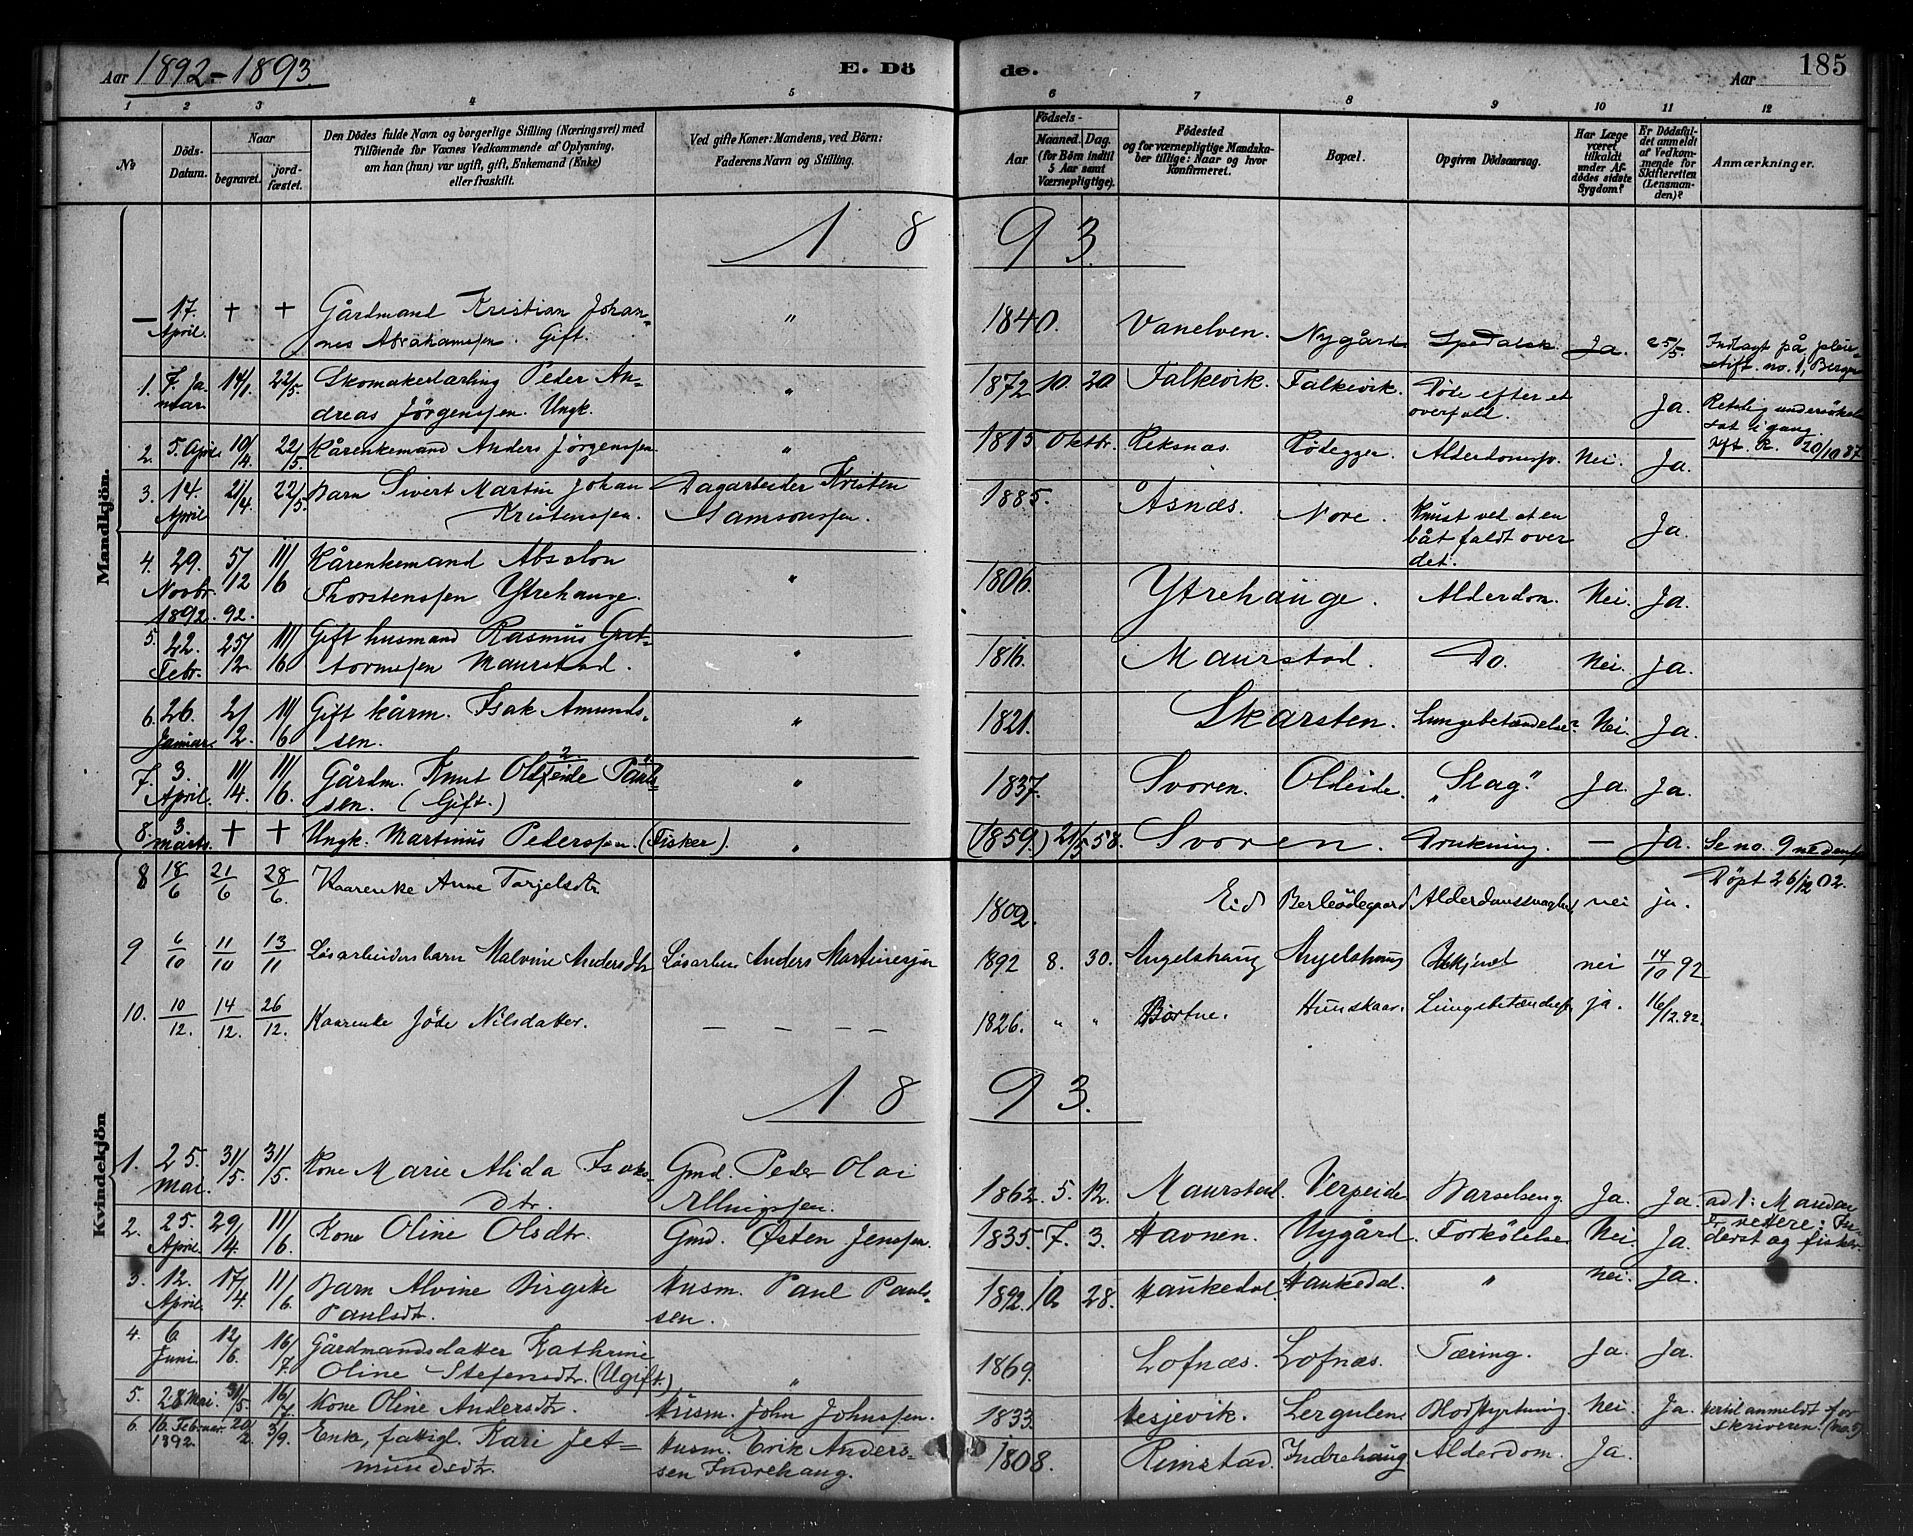 Aar 1892-1893. E. Dö de. Aar 185
1 2 3 4 5 6 7 8 9 10 11 12
No
Döds-Datum.
Naar
begravet.
jordfæstet.
Den Dödes fulde Navn og borgerlige Stilling (Næringsvei) med
Tilföiende for Voxnes Vedkommende af Oplysning,
om han (hun) var ugift, gift, Enkemand (Enke)
eller fraskilt.
Ved gifte Koner: Mandens, ved Börn:
Faderens Navn og Stilling.
Födsels-
Aar
Maaned. Dag.
(for Börn indtil
5 Aar samt
Værnepligtige).
Födested
og for værnepligtige Mandskaber
tillige: Naar og hvor
konfirmeret.
Bopæl.
Opgiven Dödsaarsag.
Har Læge
været
tilkaldt
under Afdödes
sidste
Sygdom?
Er Dödsfaldet
anmeldt
af Vedkommende
for
Skifteretten
(Lensmanden)?
Anmærkninger.
Mandkjön.
1 8 9 3.
— 17. April. + + Gårdmand Kristian Johannes Abrahamssen. Gift. " 1840. Vanelven. Nygård Spedalsk. Ja. 25/5. Indlagt på pleiestift. no. 1, Bergen
1. 7. Januar 14/1. 22/5. Skomakerlærling Peder Andreas Jörgenssen. Ungk. " 1872 10. 20 Falkevik. Falkevik. Döde efter et overfald. Ja. Retslig undersökelse sat igang.
2. 5. April 10/4. 22/5. Kårenkemand Anders Jörgenssen " 1815. Oktbr. Reksnæs. Rödegger. Alderdomssv. Nei. Ja. 20/10 87
3. 14. April 21/4. 22/5. Barn Sivert Martin Johan Kristenssen. Dagarbeider Kristen Samsonssen. 1885. Åsnæs. Nore. Knust ved at en båt faldt over det. Ja.
4. 29. Novbr. 1892. 5/12 92. 11/6 Kårenkemand Absalon Thorstenssen Ytrehauge. " 1806. Ytrehauge. Alderdom. Nei. Ja.
5. 22. Febr. 25/2 11/6 Gift husmand Rasmus Guttormssen Maurstad. " 1816. Maurstad. Do. Nei. Ja.
6. 26. Januar. 2/2. 11/6 Gift kårm. Isak Amundssen. " 1821. Skarsten. Lungebetændelse? Nei. Ja.
7. 3. April. 11/4. 11/6. Gårdm. Knut Oldeide Paulssen. (Gift.) " 1837. Svoren. Oldeide. "Slag". Ja. Ja.
8. 3. Marts. + + Ungk. Martinus Pederssen. (Fisker). " (1859.) 21/5 58. Svoren. Drukning. — Ja. Se no. 9 nedenfor
Kvindekjön
8 18/6 21/6 28/6. Kaarenke Anne Torjelsdtr 1802. Eid Berleödegaard Alderdomssvaghed nei ja. Döpt 26/12 02.
9 6/10 11/10 13/11 Lösarbeidersbarn Malvine Andersdtr Lösarbei. Anders Martinessen 1892 8. 30. Angelshaug Angelshaug Ukjendt nei 14/10 92
10. 10/12. 14/12. 26/12. Kaarenke Jöde Nilsdatter. — — — — 1826. " " Bortne. Hunskaar. Lungebetændelse ja. 16/12.92.
1 8 9 3.
1. 25. Mai. 31/5. 31/5. Kone Marie Alida Isaksdtr. Gmd. Peder Olai Ellingssen. 1862. 5. 12. Maurstad. Verpeide Barselseng. Ja. Ja. ad 1: Manden er rettere: Inderst og fisker
2. 25. April. 29/4. 11/6. Kone Oline Olsdtr. Gmd. Østen Jenssen. 1835. 7. 3. Havnen. Nygård. Forkölelse Nei Ja.
3. 12. April 17/4. 11/6. Barn Alvine Birgite Paulsdtr. Husm. Paul Paulssen. 1892. 10 28. Haukedal. Haukedal. " Nei. Ja.
4. 6 Juni 12/6. 16/7. Gårdmandsdatter Kathrine Oline Stefensdtr. (Ugift.) " 1869. Lofnæs. Lofnæs. Tæring. Ja. Ja.
5. 28 Mai. 31/5. 16/7. Kone Oline Andersdtr. Husm. John Johnssen. 1833. Hesjevik. Lergulen Blodstyrtning. Nei. Ja. anmeldt for skriveren. (no. 5)
6. 16. Februar. 1892. 20/2 3/9. Enke, fattigl. Kari Jetmundsdtr. Husm. Erik Anderssen Indrehaug. 1808. Rimstad. Indrehaug Alderdom. Ja.